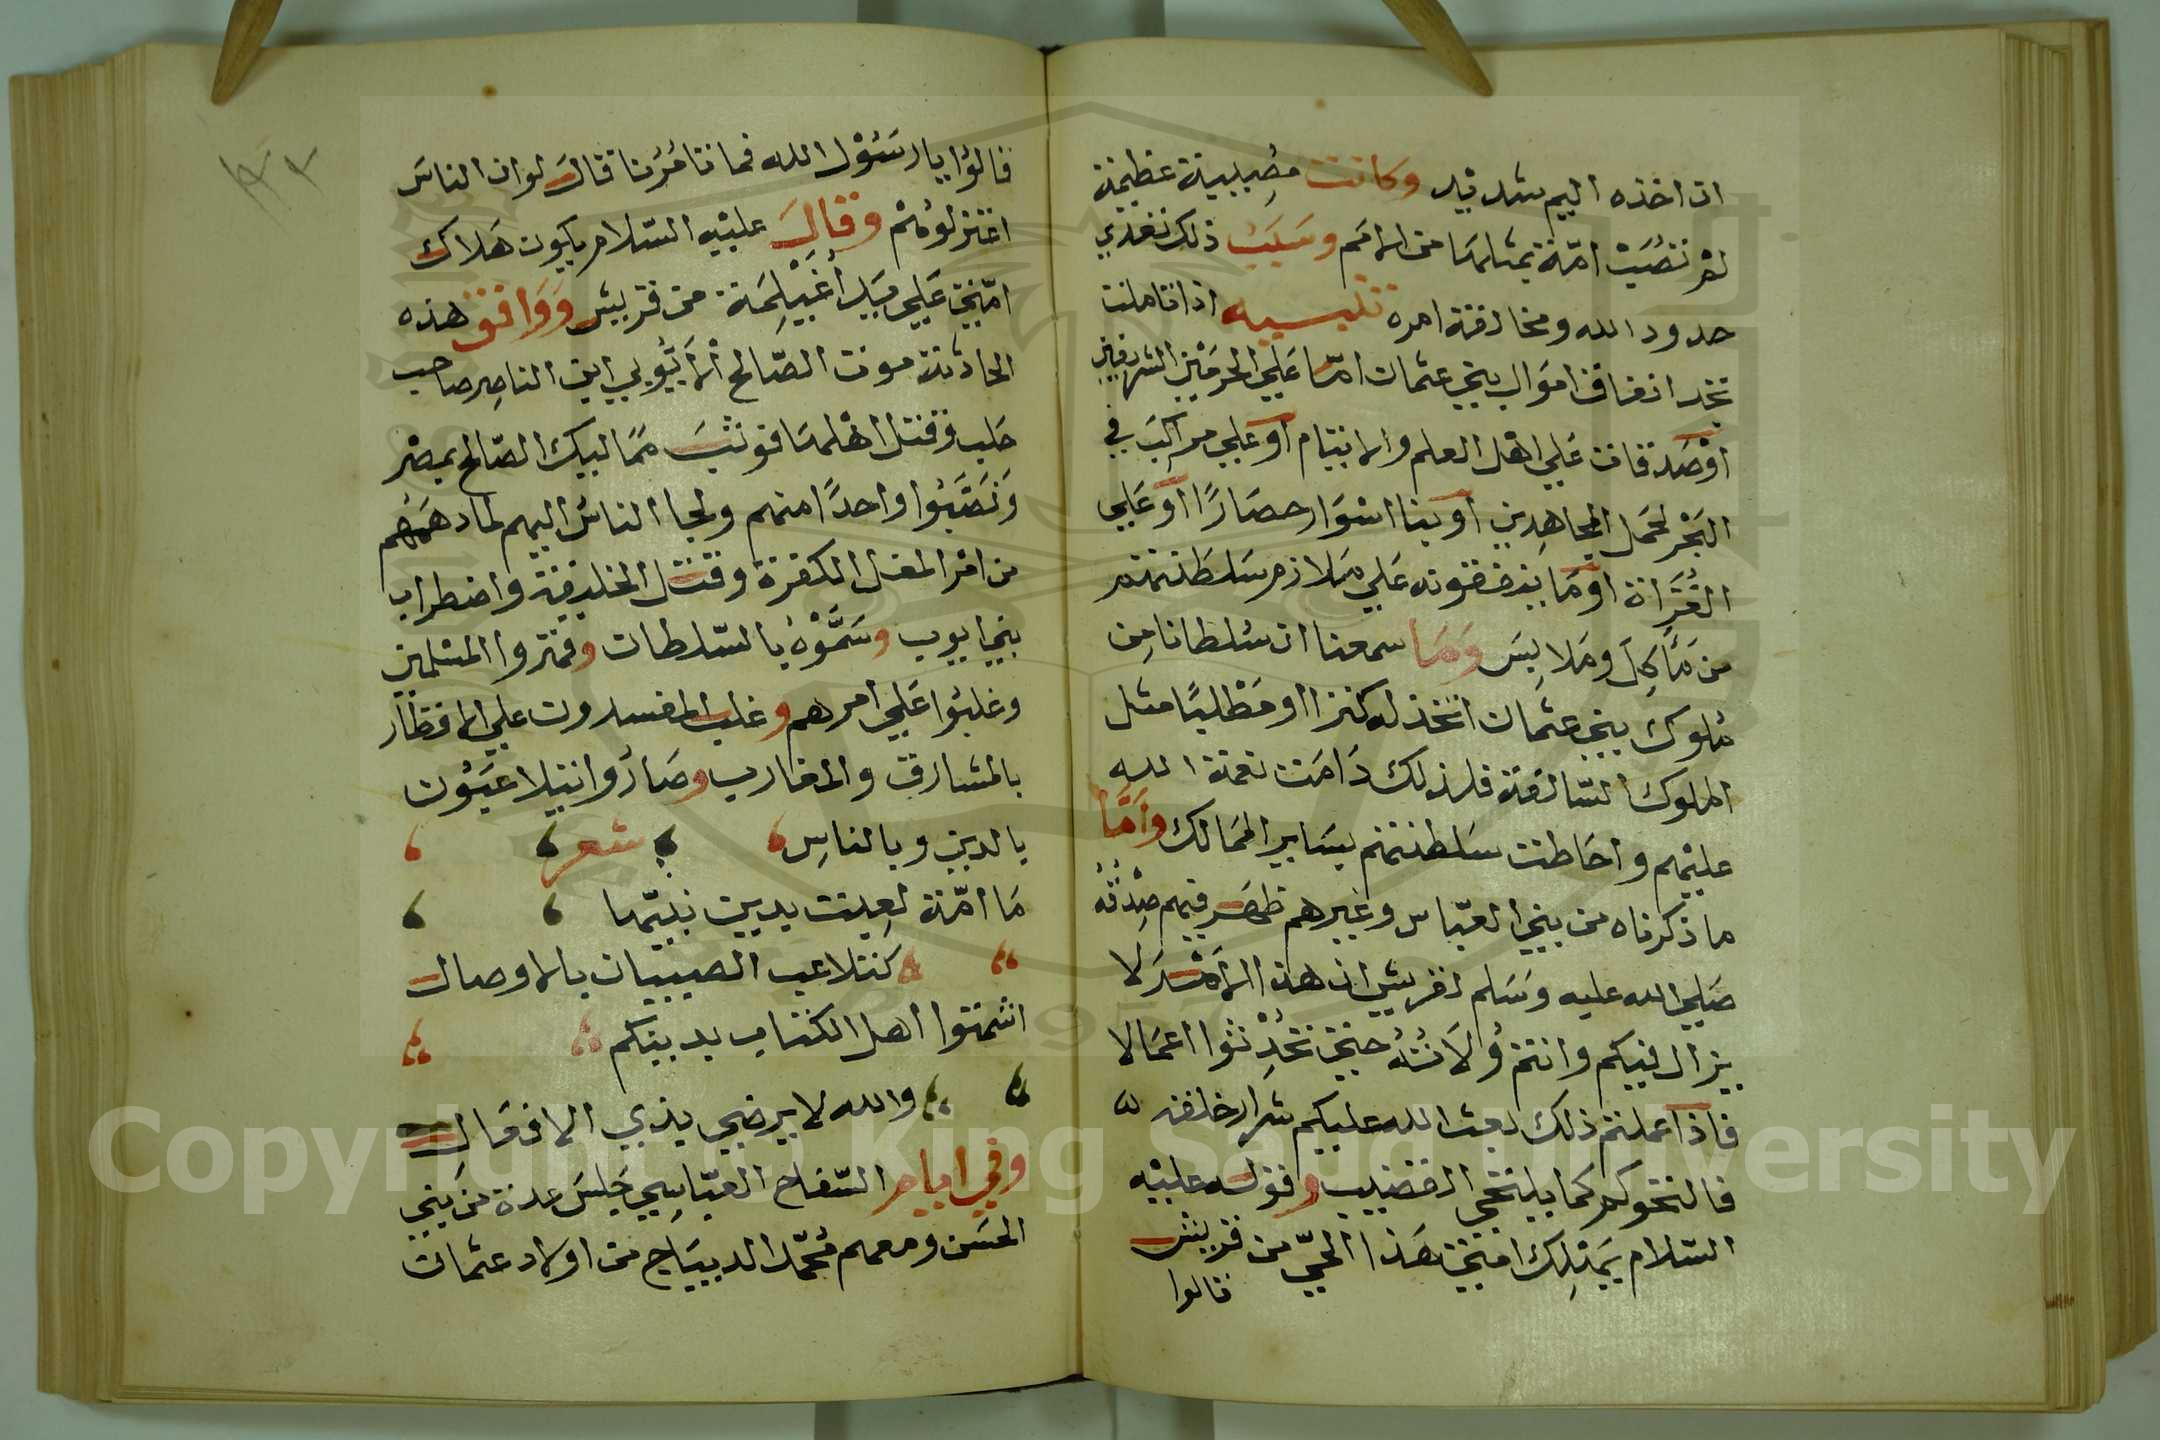 ان اخذه اليم شديد وكانت مصيبية عظيمة
لم تصب امّة بمثلها من الامم وسبب ذلك تعدي
حدود الله ومخالفة امره تنبيه اذا تاملت
تجد انفاق اموال بني عثمان امّا علي الحرمين الشريفين
او صدقات علي اهل العلم والايتام او علي مراكب في
البحر لحمل المجاهدين او بنا اسوار حصارًا او علي
الغزاة او ما ينفقونه علي ملازم سلطنتهم
من مأكل وملابس وما سمعنا ان سلطانا من
ملوك بني عثمان اتخذ له كنزا او مطلبًا مثل
الملوك السّالفة فلذلك دامت نعمة الله
عليهم واحاطت سلطنتهم بساير الممالك وأمّا
ما ذكرناه من بني العبّاس وغيرهم ظهر فيهم صدقه
صلي الله عليه وسلم لقريش ان هذا الأمر لا
يزال فيكم وانتم ولاته حتي تحدثوا اعمالا
فاذا عملتم ذلك بعث الله عليكم شرار خلقه
فالتحوكم كما يلتحي القضيب وقوله عليه
السّلام يهلك امتي هذا الحيّ من قريش
قالوا
قالوا يا رسول الله فما تامرنا قال لو ان الناس
اعتزلوهم وقال عليه السّلام يكون هلاك
امّتي علي يد أغيلمة من قريش ووافق هذه
الحادثة موت الصّالح الأيّوبي ابن الناصر صاحب
حلب وقتل اهلها فوثب مماليك الصّالح بمصر
ونصّبوا واحدًا منهم ولجا الناس اليهم لما دهمهم
من امر المغل الكفرة وقتل الخليفة واضطراب
بني ايوب وسمّوه بالسّلطان وقهروا المسلمين
وغلبوا علي امرهم وغلب المفسدون علي الاقطار
بالمشارق والمغارب وصاروا يتلاعبون
بالدين وبالناس شعر
ما امّة لعبت بدين نبيّها
كتلاعب الصبيان بالاوصال
اشمتوا اهل الكتاب بدينكم
والله لا يرضي بذي الافعال
وفي ايام السّفاح العبّاسي جلس عدة من بني
الحسن ومعهم محمّد الديباج من اولاد عثمان
Copyright © King Saud University